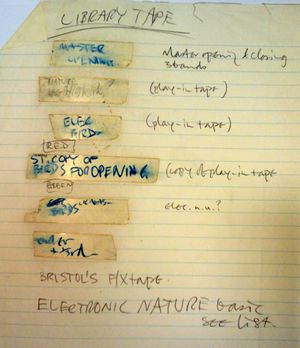 LIBRARY TAPE
MASTER OPENING
Master opening & closing
3 bands
NATURE
(play-in tape)
ELEC BIRD
(play-in tape)
RED
ST. COPY OF
BIRDS FOR OPENING
(copy of play-in tape
GREEN
BIRDS
elec. n.u.?
BRISTOL'S F/X tape.
ELECTRONIC NATURE basic
SEE list.